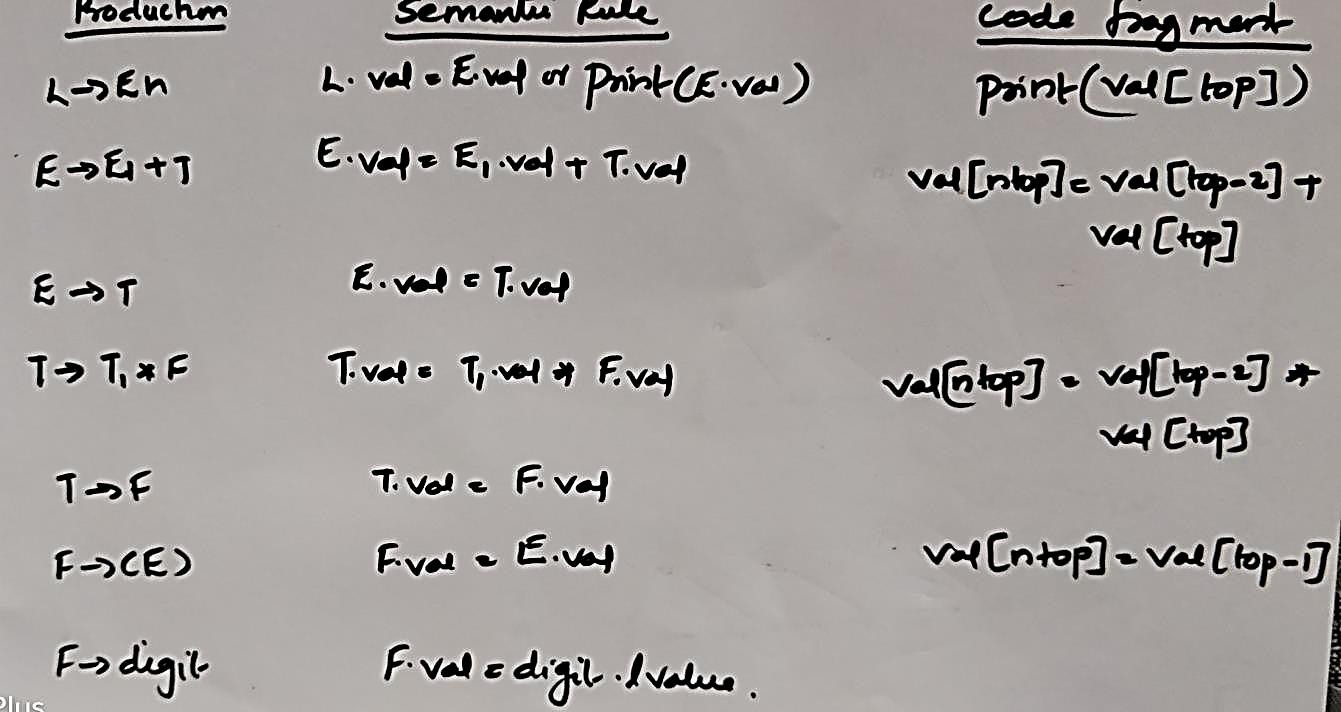 Production Semantic Rule Code fragment
L→En L.val = E.val or Print(E.val) print(val[top])
E→E₁+T E.val = E₁.val + T.val val[ntop] = val[top-2] +
val[top]
E→T E.val = T.val
T→T₁*F T.val = T₁.val * F.val val[ntop] = val[top-2] *
val[top]
T→F T.val = F.val
F→(E) F.val = E.val val[ntop] = val[top-1]
F→digit F.val = digit.lvalue.
Plus